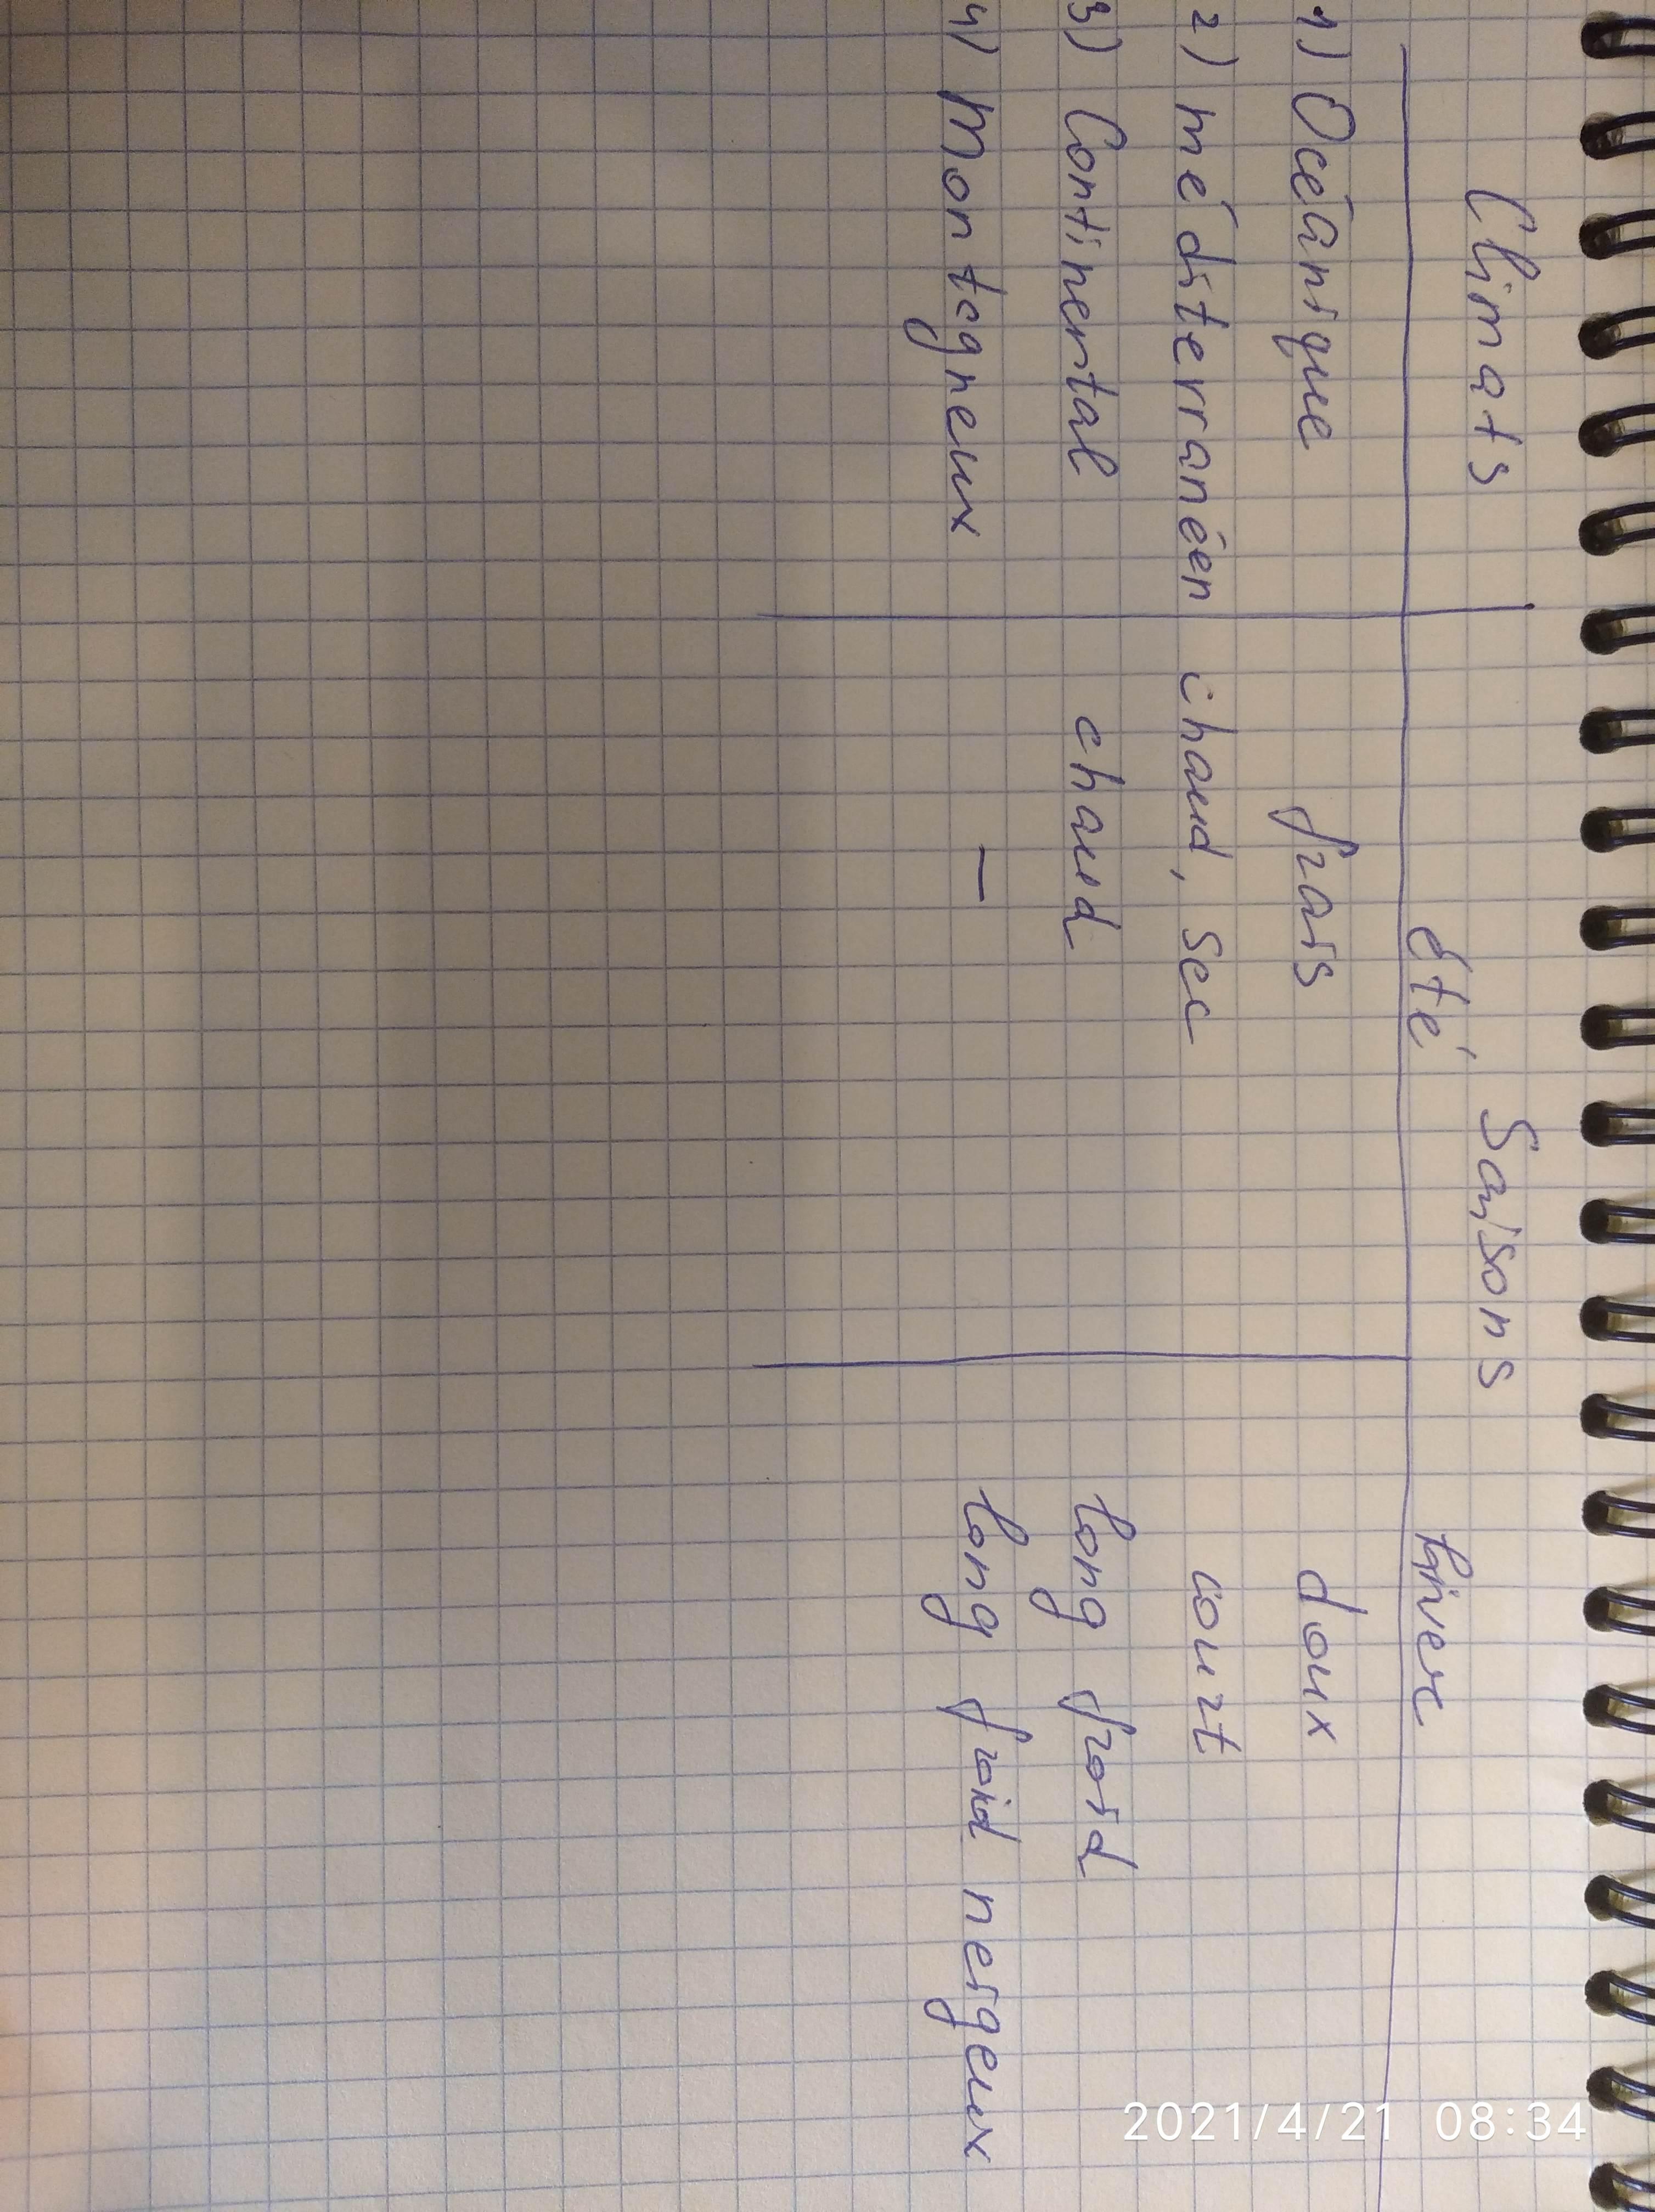 Climats Saisons
été hiver
1) Océanique frais doux
2) méditerranéen chaud, sec court
3) Continental chaud long froid
4) Montagneux — long froid neigeux
2021/4/21 08:34